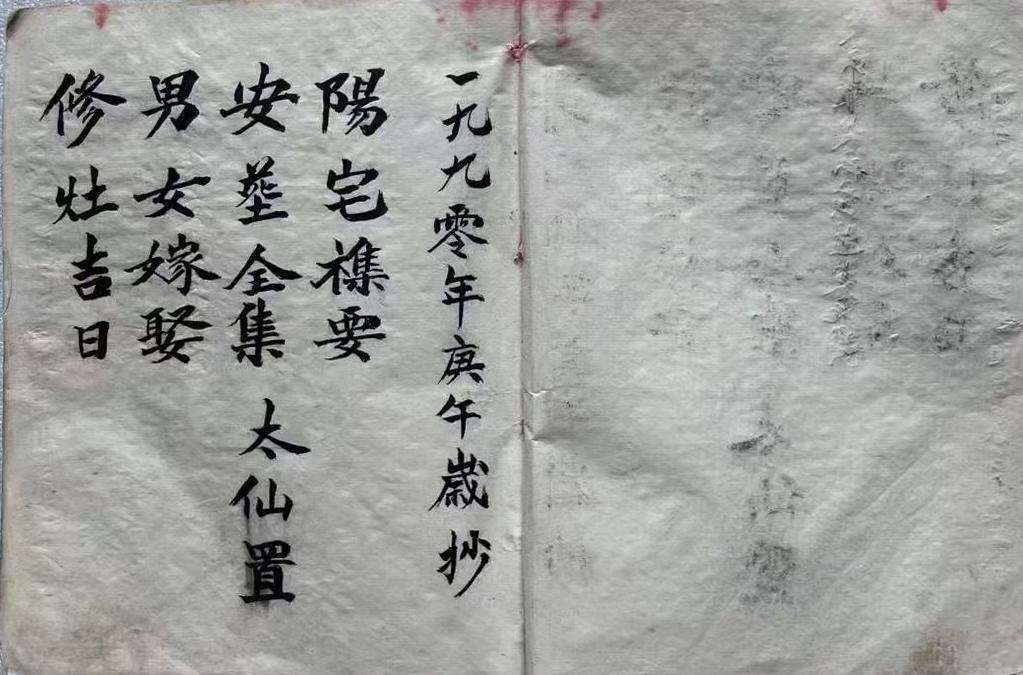 一九九零年庚午歲抄
陽宅襍要
安塟全集 太仙置
男女嫁娶
修灶吉日